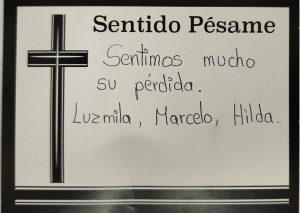 Sentido Pésame
Sentimos mucho
su pérdida.
Luzmila, Marcelo, Hilda.